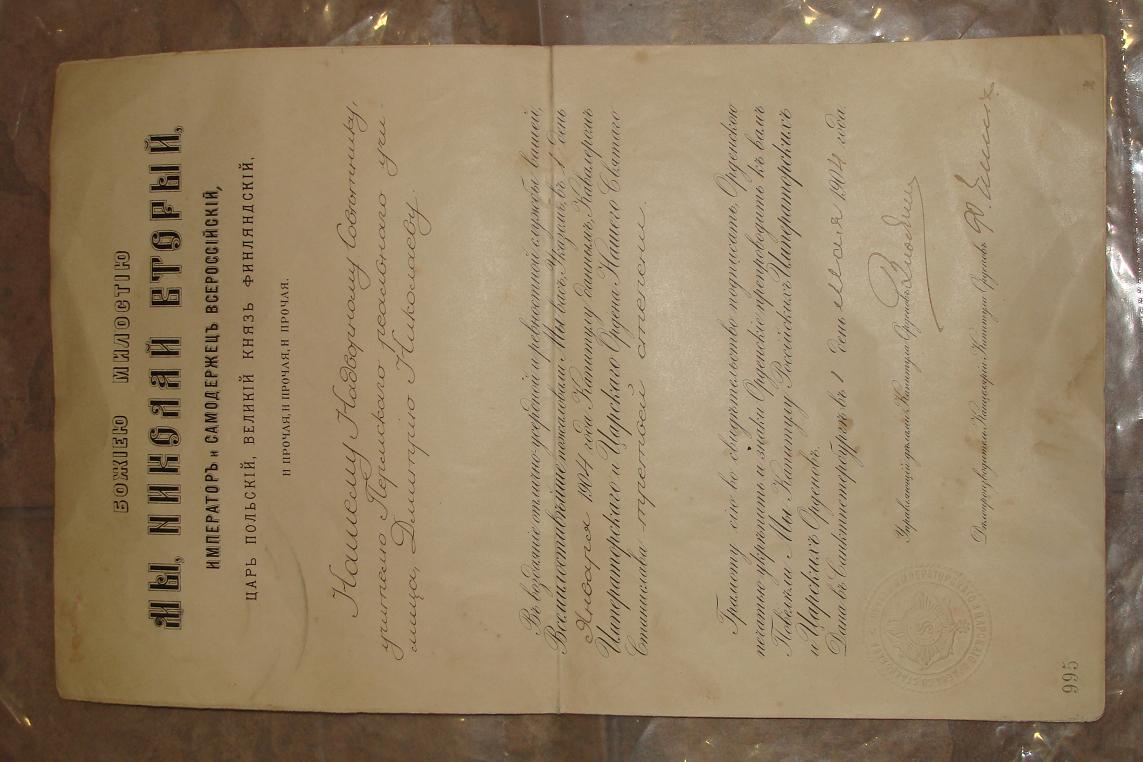 БОЖІЕЮ МИЛОСТІЮ
МЫ, НИКОЛАЙ ВТОРЫЙ,
ИМПЕРАТОРЪ и САМОДЕРЖЕЦЪ ВСЕРОССІЙСКІЙ,
ЦАРЬ ПОЛЬСКІЙ, ВЕЛИКІЙ КНЯЗЬ ФИНЛЯНДСКІЙ,
И ПРОЧАЯ, И ПРОЧАЯ, И ПРОЧАЯ.
Нашему Надворному Совѣтнику,
учителю Пермскаго реальнаго учи-
лища, Димитрію Николаеву.
Въ воздаяніе отлично-усердной и ревностной службы вашей,
Всемилостивѣйше пожаловали Мы васъ, Указомъ, въ 1 день
Января 1904 года Капитулу даннымъ, Кавалеромъ
Императорскаго и Царскаго Ордена Нашего Святаго
Станислава третьей степени.
Грамоту сію во свидѣтельство подписать, Орденскою
печатью укрѣпить и знаки Орденскіе препроводить къ вамъ
Повелѣли Мы Капитулу Россійскихъ Императорскихъ
и Царскихъ Орденовъ.
Дана въ Санктпетербургѣ въ 1 день Мая 1904 года.
Управляющій дѣлами Капитула Орденовъ
Дѣлопроизводитель Канцеляріи Капитула Орденовъ
995